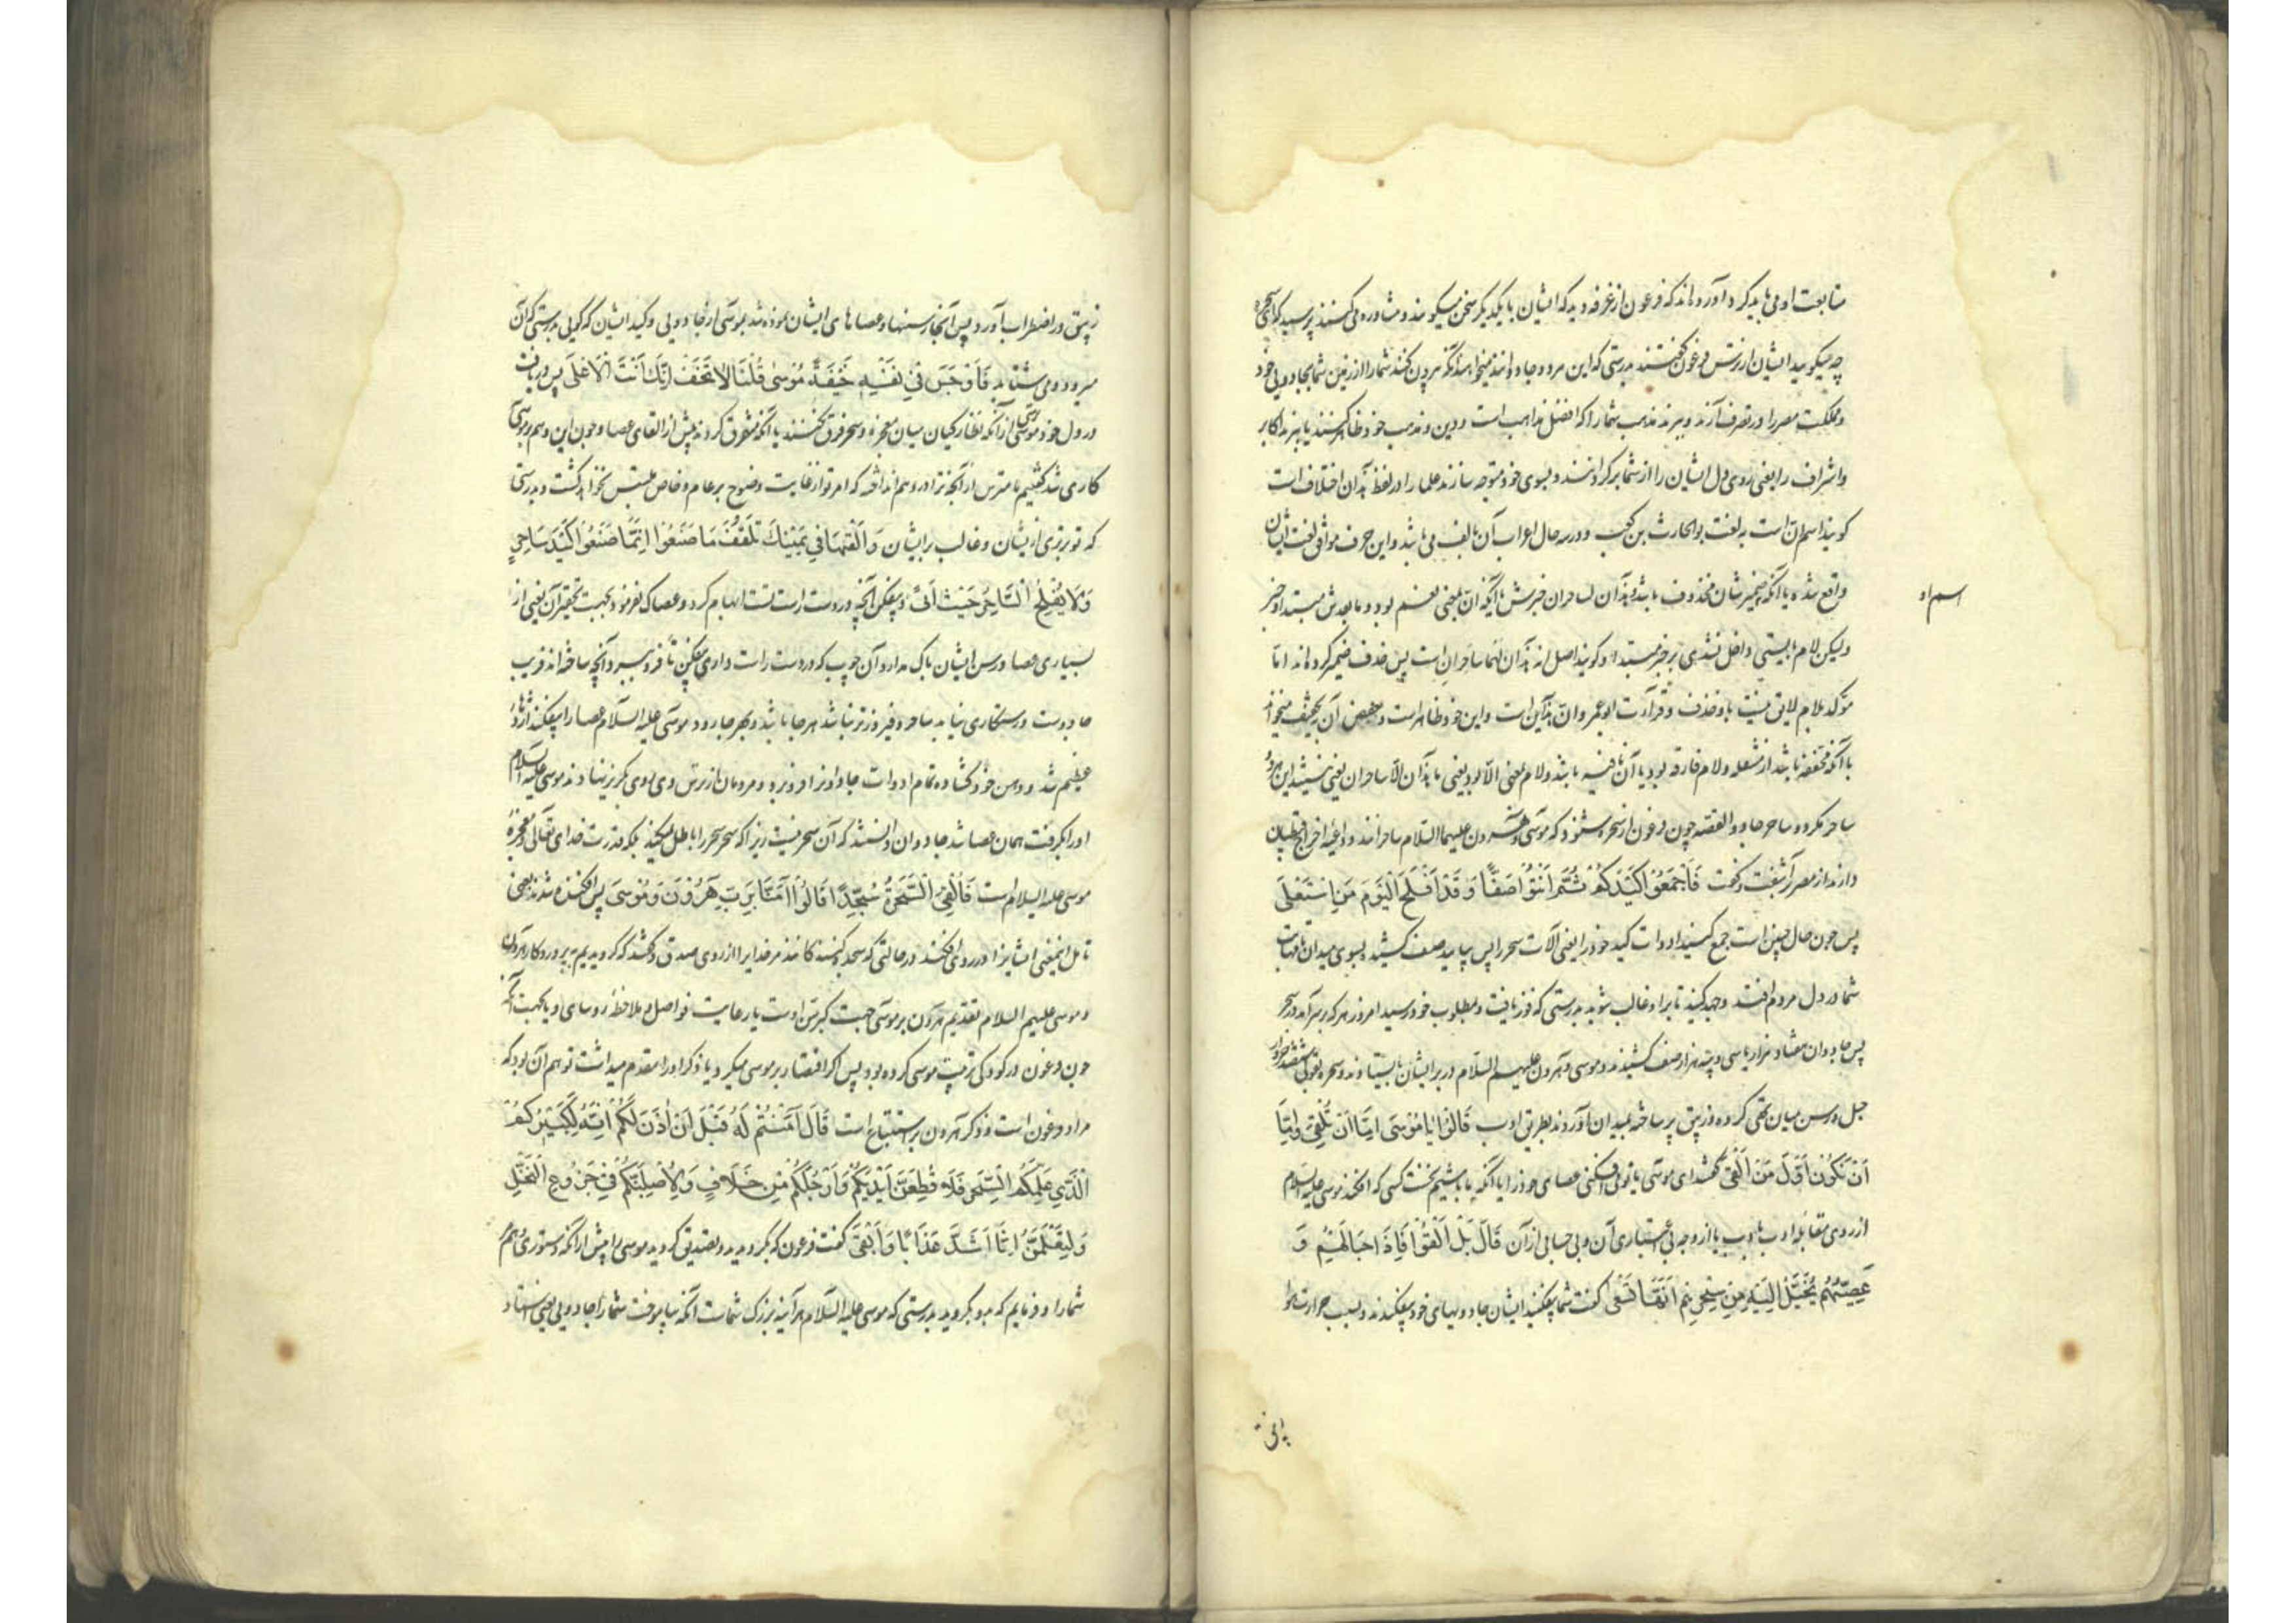 متابعت او می باید کرد آورده اند که فرعون از غرفه دید که ایشان با یکدیگر سخن میگویند و مشاوره می کنند پرسید که این سحره
چه میگویند ایشان از ترس فرعون گفتند بدرستی که این مرد و جادو انند میخواهند آنکه بیرون کنند شما را از زمین شما بجادویی خود
و مملکت مصر را در تصرف آرند و ببرند مذهب شما را که افضل مذاهب است و دین و مذهب خود ظاهر کنند یا ببرند اکابر
و اشراف را یعنی روی دل ایشان را از شما برگردانند و بسوی خود متوجه سازند علما را در لفظ هذان اختلاف است
گویند اسم ان است به لغت بوالحارث بن کعب و در سه حال اعراب آن بالف می باشد و این حرف موافق لغت ایشان
واقع شده یا آنکه ضمیر شان محذوف باشد و هذان لساحران خبرش یا آنکه ان بمعنی نعم بود و ما بعدش مبتدا و خبر
اسم او
ولیکن لام بایستی داخل نشدی بر خبر مبتدا و گویند اصل انه هذان لهما ساحران است پس حذف ضمیر کرده اند اما
مؤکد بلام لایق نیست باو حذف و قراءت ابو عمرو ان هذین است و این خود ظاهر است و حفص ان بتخفیف میخواند
یا آنکه مخففه باشد از مثقله و لام فارقه بود یا آن نافیه باشد و لام بمعنی الا بود یعنی ما هذان الا ساحران یعنی نیستند این هر دو
ساحر مگر دو ساحر جادو القصه چون فرعون از سحره شنود که موسی و هرون علیهما السلام ساحرانند و داعیه اخراج قبطیان
دارند از مصر برآشفت و گفت فَاَجْمِعُوا كَيْدَكُمْ ثُمَّ ائْتُوا صَفًّا وَقَدْ اَفْلَحَ الْيَوْمَ مَنِ اسْتَعْلَى
پس چون حال چنین است جمع کنید ادوات کید خود را یعنی آلات سحر را پس بیایید صف کشیده بسوی میدان تا مهابت
شما در دل مردم افتد و جهد کنید تا بر او غالب شوید بدرستی که فوز یافت و بمطلوب خود رسید امروز هر که برآمد در سحر
پس جادوان هفتاد هزار یا سی و پنج هزار صف کشیدند و موسی و هرون علیهم السلام در برابر ایشان بایستادند و سحره بقولی سیصد خروار
حبل و رسن میان تهی کرده و زیبق پر ساخته بمیدان آوردند بطریق ادب قَالُوا يَا مُوسَى اِمَّا اَنْ تُلْقِيَ وَاِمَّا
اَنْ نَكُونَ اَوَّلَ مَنْ اَلْقَى گفتند ای موسی یا تو می افکنی عصای خود را یا آنکه ما باشیم نخست کسی که افکند موسی علیه السلام
از روی مقابله ادب بادب یا از وجه بی اعتباری آن و بی حسابی از آن قَالَ بَلْ اَلْقُوا فَاِذَا حِبَالُهُمْ وَ
عِصِيُّهُمْ يُخَيَّلُ اِلَيْهِ مِنْ سِحْرِهِمْ اَنَّهَا تَسْعَى گفت شما بیفکنید ایشان جادوییهای خود بیفکندند و بسبب حرارت هوا
زیبق در اضطراب آورد پس آنجا رسنها و عصاهای ایشان نموده شد بموسی از جادویی و کید ایشان که گویی بدرستی که آن
میرود و می شتابد فَاَوْجَسَ فِي نَفْسِهِ خِيفَةً مُوسَى قُلْنَا لَا تَخَفْ اِنَّكَ اَنْتَ الْاَعْلَى پس دریافت
در دل خود موسی ترسی از آنکه نظارگیان میان معجزه و سحر فرق نکنند یا آنکه متفرق گردند پیش از القای عصا و چون این وهم بر موسی
کاری شد گفتیم ما مترس از آنچه ترا در وهم انداخته که امر تو از غایت وضوح بر عام و خاص ملتبس نخواهد گشت و بدرستی
که تو برتری از ایشان و غالب بر ایشان وَاَلْقِ مَا فِي يَمِينِكَ تَلْقَفْ مَا صَنَعُوا اِنَّمَا صَنَعُوا كَيْدُ سَاحِرٍ
وَلَا يُفْلِحُ السَّاحِرُ حَيْثُ اَتَى و بیفکن آنچه در دست راست تست ابهام کرد و عصاک نفرمود بجهت تحقیر آن یعنی از
بسیاری عصا و رسن ایشان باک مدار و آن چوب که در دست راست داری بیفکن تا فرو برد آنچه ساخته اند فریب
جادوست و رستکاری نیابد ساحر و فیروز نباشد هر جا باشد و بهر جا رود موسی علیه السلام عصا را بیفکند اژدها
عظیم شد و دهن خود گشاده تمام ادوات جادوانرا فرو برد و مردمان از ترس وی روی بگریز نهادند موسی علیه السلام
او را بگرفت همان عصا شد جادوان دانستند که آن سحر نیست زیرا که سحر سحر را باطل نمیکند بلکه قدرت خدای تعالی و معجزه
موسی علیه السلام است فَاُلْقِيَ السَّحَرَةُ سُجَّدًا قَالُوا آمَنَّا بِرَبِّ هَرُونَ وَمُوسَى پس افکنده شدند یعنی
تامل اینمعنی ایشانرا در روی افکند در حالتی که سجده کنندکانند مر خدایرا از روی صدق و گفتند که گرویدیم به پروردگار هرون
و موسی علیهم السلام تقدیم هرون بر موسی جهت کبر سن اوست یا رعایت فواصل و ملاحظه روسای او یا بجهت آنکه
چون فرعون در کودکی تربیت موسی کرده بود پس اگر اقتصار بر موسی میکرد یا ذکر او را مقدم میداشت توهم آن بود که
مراد فرعون است و ذکر هرون بر استتباع است قَالَ آمَنْتُمْ لَهُ قَبْلَ اَنْ آذَنَ لَكُمْ اِنَّهُ لَكَبِيرُكُمُ
الَّذِي عَلَّمَكُمُ السِّحْرَ فَلَاُقَطِّعَنَّ اَيْدِيَكُمْ وَاَرْجُلَكُمْ مِنْ خِلَافٍ وَلَاُصَلِّبَنَّكُمْ فِي جُذُوعِ النَّخْلِ
وَلَتَعْلَمُنَّ اَيُّنَا اَشَدُّ عَذَابًا وَاَبْقَى گفت فرعون که بگرویدید و تصدیق کردید موسی را پیش از آنکه دستوری دهم
شما را و فرمایم که بدو بگروید بدرستی که موسی علیه السلام هر آینه بزرگ شماست آنکه بیاموخت شما را جادویی یعنی استاد